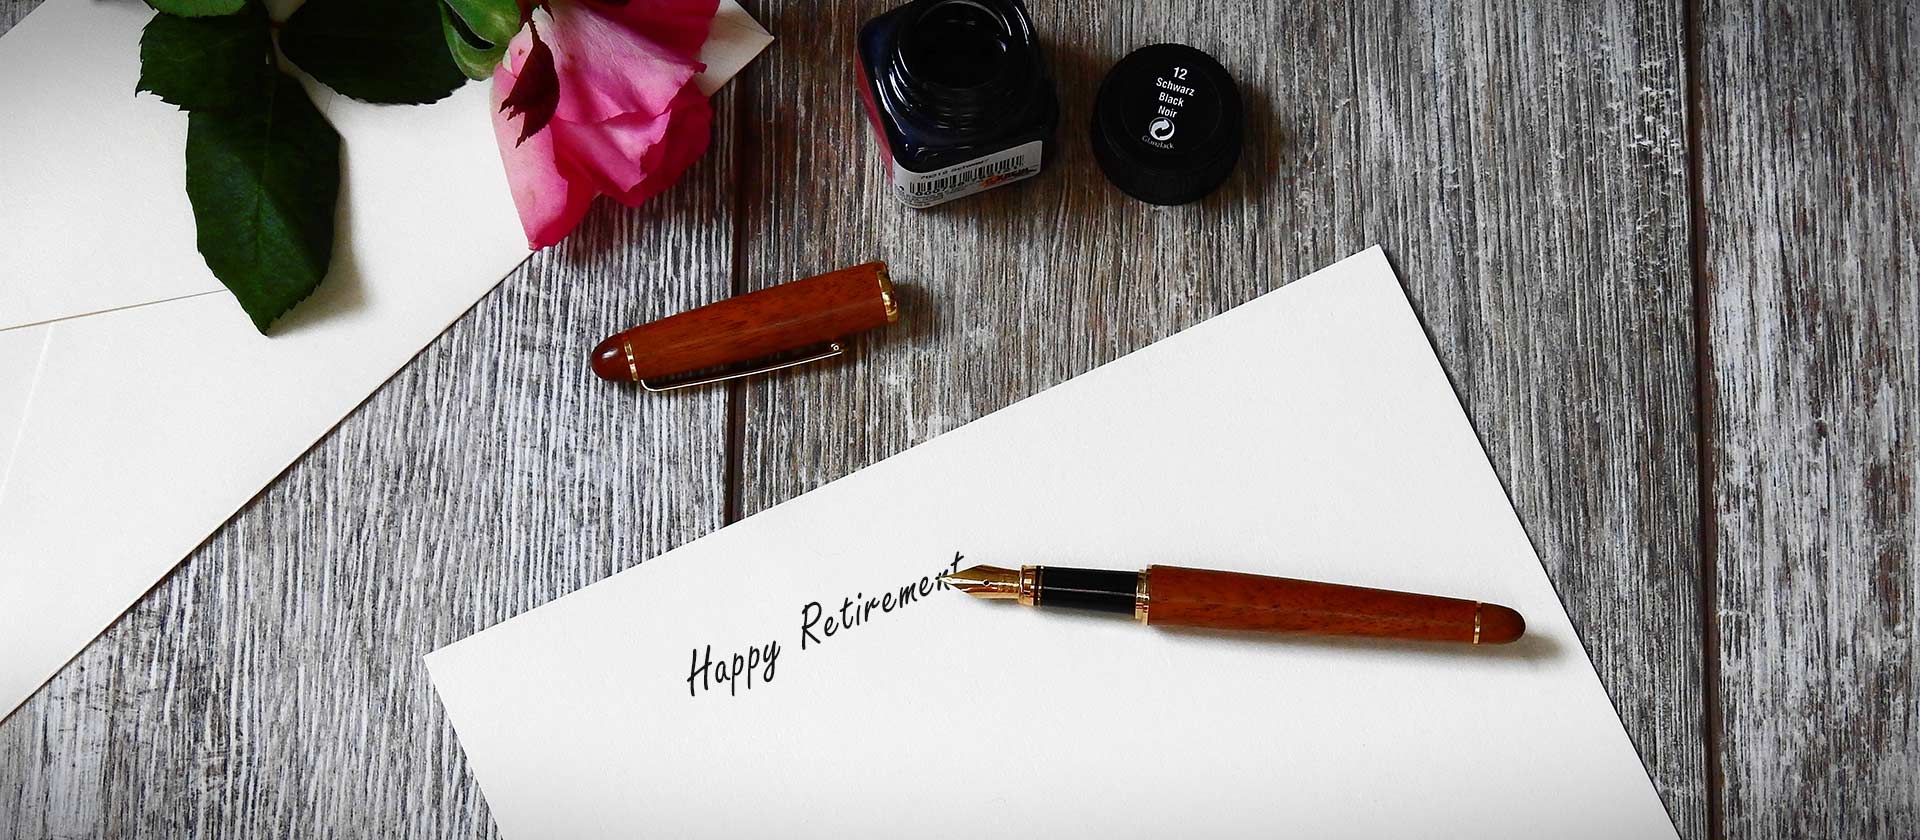 12
Schwarz
Black
Noir
Happy Retirement